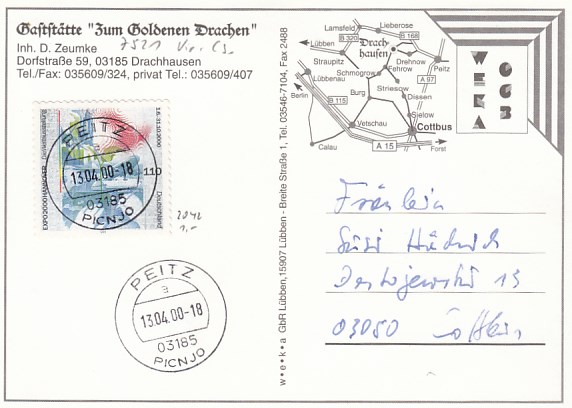 Gaststätte "Zum Goldenen Drachen"
Inh. D. Zeumke
Dorfstraße 59, 03185 Drachhausen
Tel./Fax: 035609/324, privat Tel.: 035609/407
EXPO2000HANNOVER
Deutschland
110
PEITZ
13.04.00-18
03185
PICNJO
2042
1,-
PEITZ
a
13.04.00-18
03185
PICNJO
w•e•k•a GbR Lübben, 15907 Lübben - Breite Straße 1, Tel. 03546-7104, Fax 2488
Lamsfeld
Lieberose
B 320
B 168
Lübben
Drach-
hausen
Straupitz
Drehnow
Peitz
Schmogrow
Fehrow
A 97
Lübbenau
Striesow
Berlin
Burg
Dissen
B 115
Sielow
Vetschau
Cottbus
Calau
A 15
Forst
WEKA
0663
Fräulein
Susi
Dostojewskistr 13
03050 Cottbus